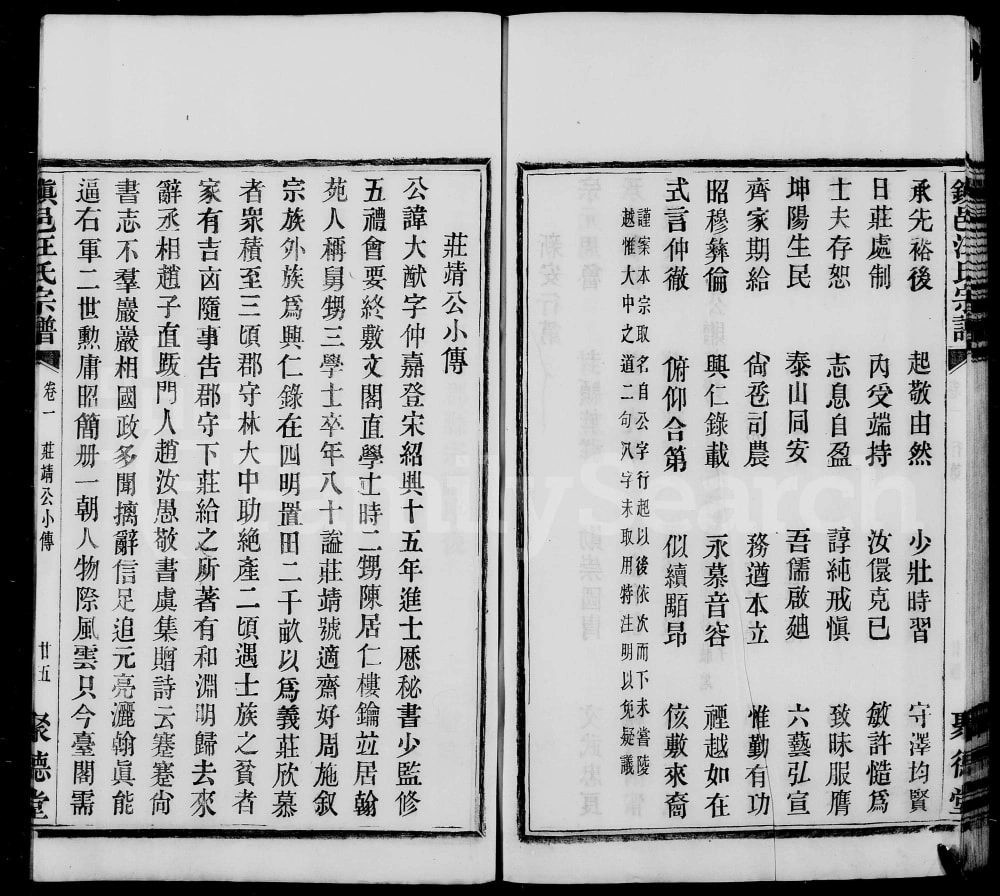 承先裕後 起敬由然 少壯時習 守澤均賢
日莊處制 內受端持 汝儇克已 敏許慥爲
士夫存恕 志息自盈 諄純戒愼 致昧服膺
坤陽生民 泰山同安 吾儒啟廸 六藝弘宣
齊家期給 尙卺司農 務遒本立 惟勤有功
昭穆彝倫 興仁錄載 永慕音容 禋越如在
式言仲徹 俯仰合第 似續顒昂 侅敷來裔
謹案本宗取名自公字行起以後依次而下未嘗陵
越惟大中之道二句汎字未取用特注明以免疑議
聚德堂
莊靖公小傳
公諱大猷字仲嘉登宋紹興十五年進士歷秘書少監修
五禮會要終敷文閣直學士時二甥陳居仁樓鑰竝居翰
苑人稱舅甥三學士卒年八十謚莊靖號適齋好周施敘
宗族外族爲興仁錄在四明置田二千畝以爲義莊欣慕
者衆積至三頃郡守林大中助絶產二頃遇士族之貧者
家有吉凶隨事告郡守下莊給之所著有和淵明歸去來
辭丞相趙子直跋門人趙汝愚敬書虞集贈詩云蹇蹇尙
書志不羣巖巖相國政多聞摛辭信足追元亮灑翰眞能
逼右軍二世勲庸昭簡册一朝人物際風雲只今臺閣需
鎭邑汪氏宗譜 卷一 莊靖公小傳 廿五 聚德堂